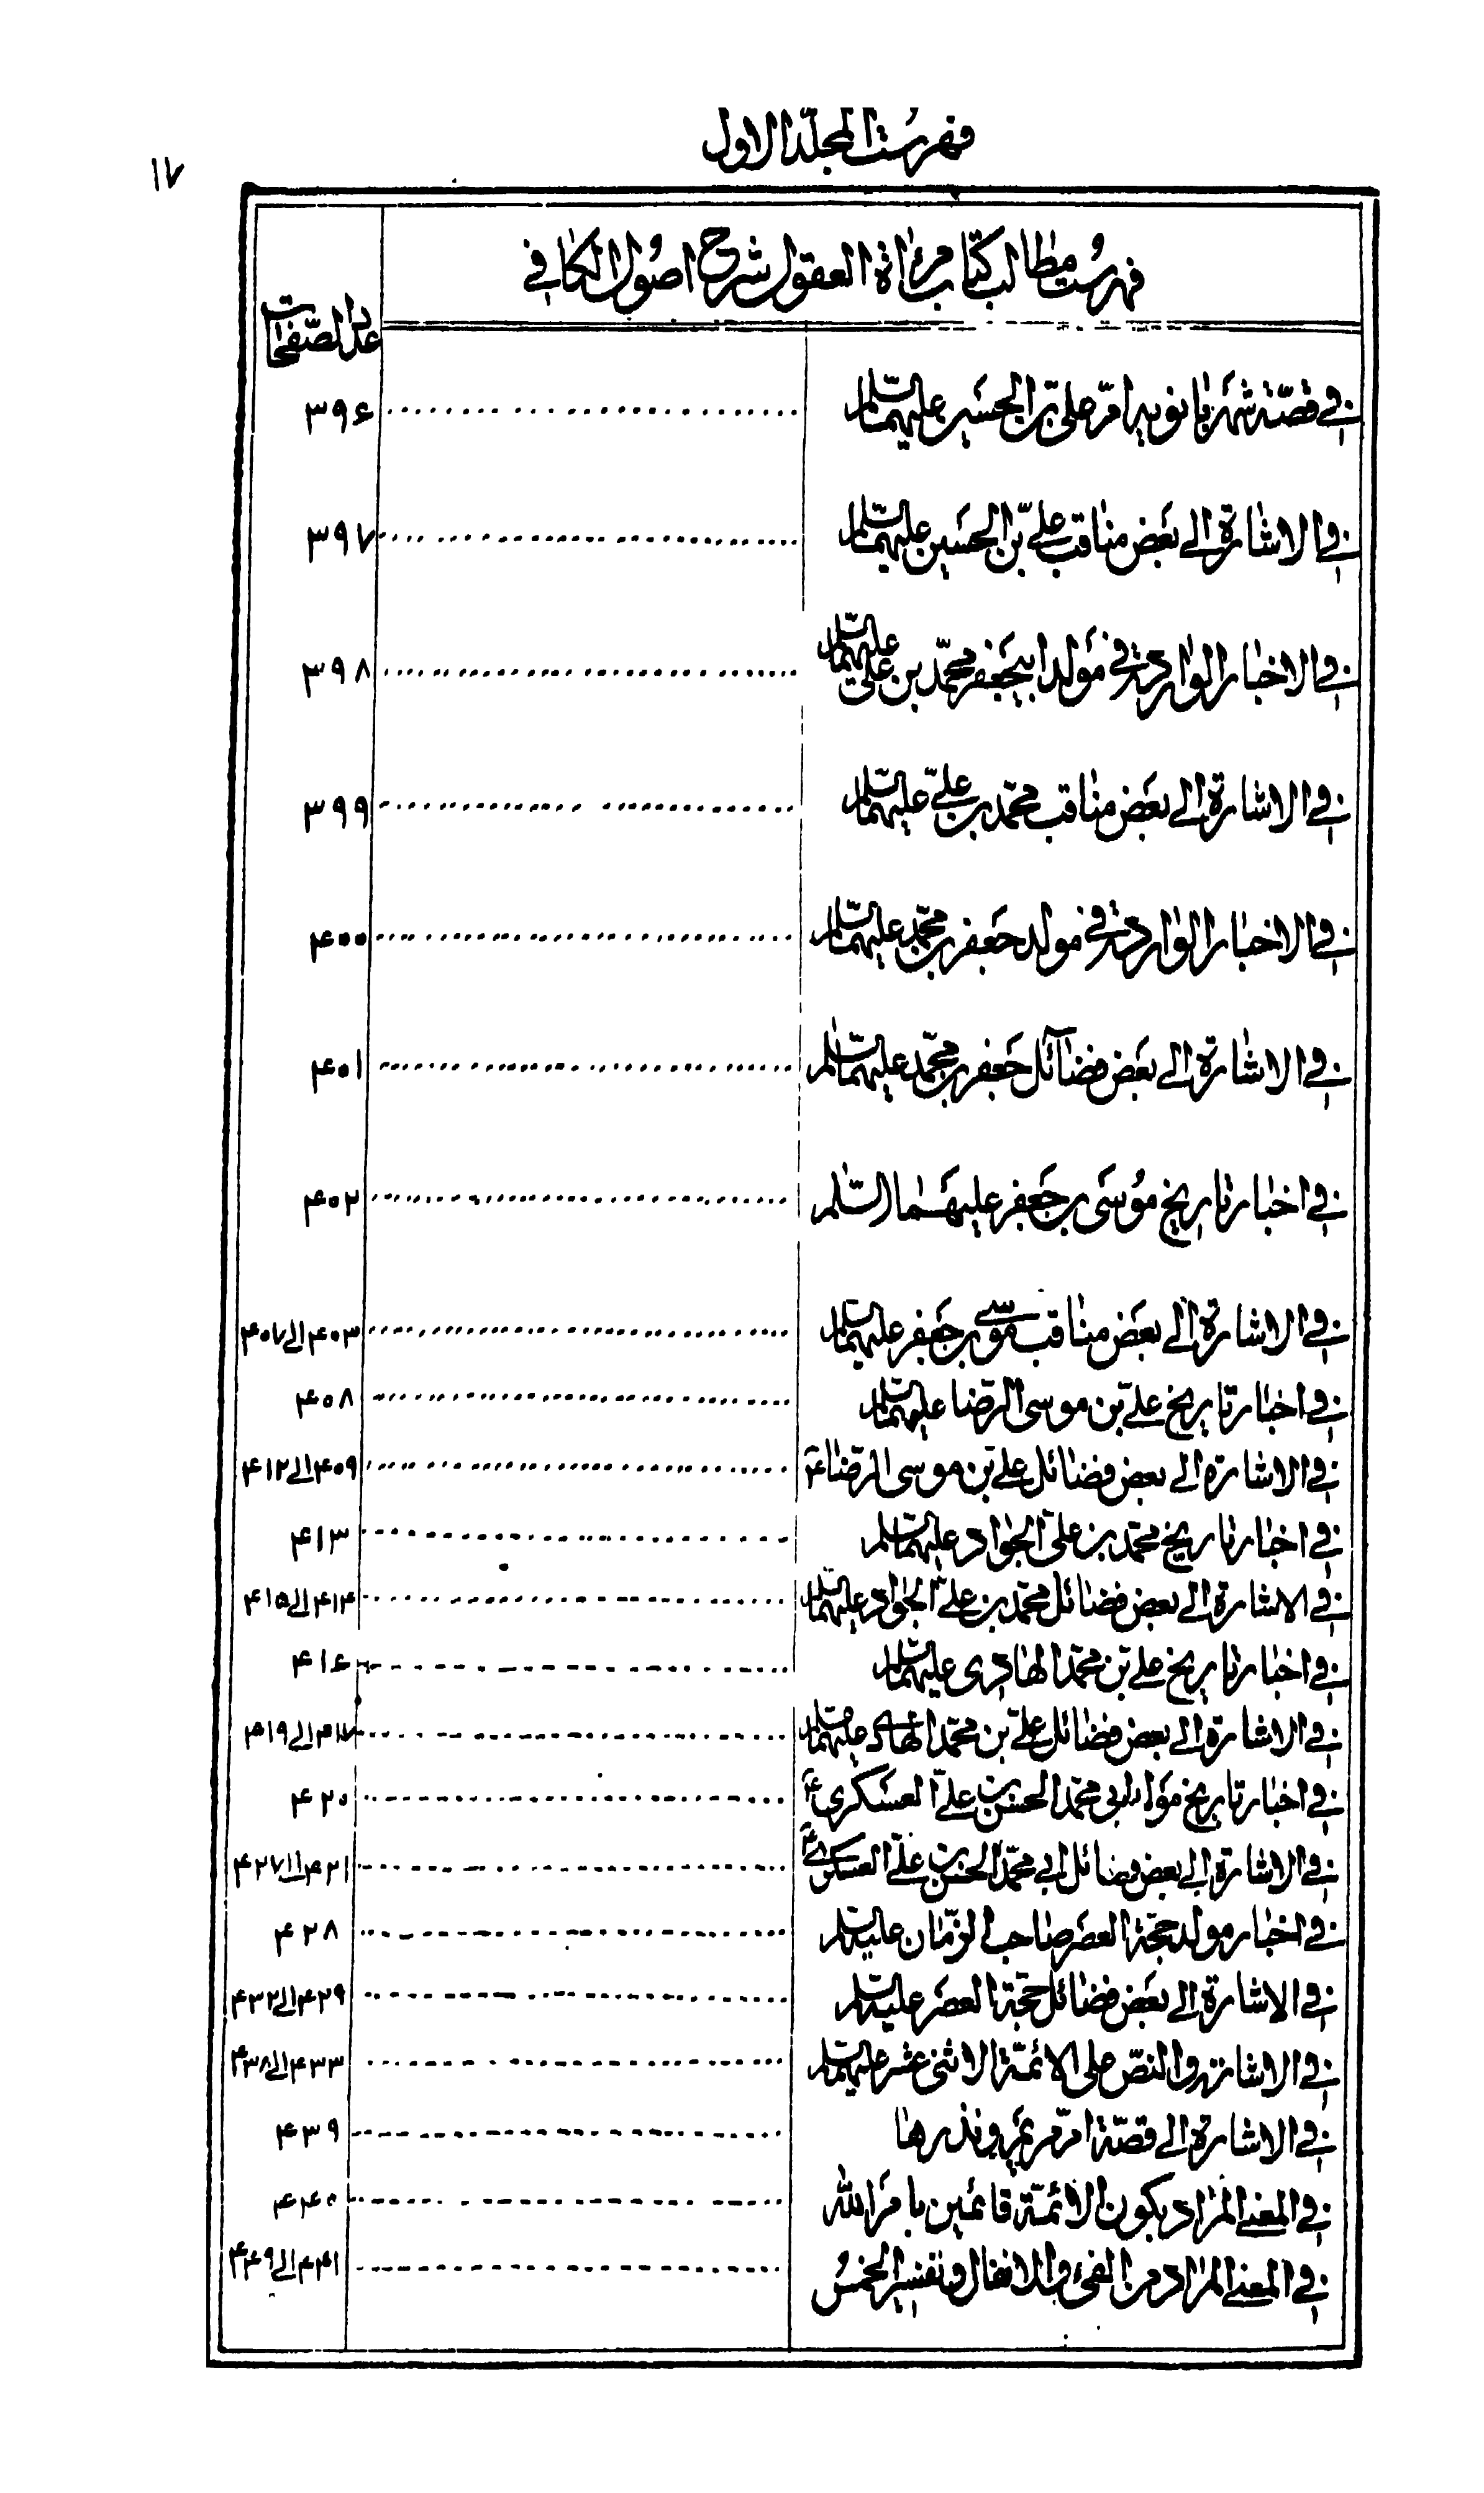 فهرست المجلد الاول
١٧
فهرست مطالب كتاب مرءاة العقول شرح اصول الكافي
عدد الصّفحات
في قصّة شهربانويه امّ علىّ بن الحسين عليهما السّلام ٣٩۶
في الاشارة الى بعض مناقب علىّ بن الحسين عليهما السّلام ٣٩٧
في الاخبار الواردة في مولد ابيجعفر محمّد بن على عليهما السّلام ٣٩٨
في الاشارة الى بعض مناقب محمّد بن علىّ عليهما السّلام ٣٩٩
في الاخبار الواردة في مولد جعفر بن محمّد عليهما السّلام ۴٠٠
في الاشارة الى بعض فضائل جعفر بن محمّد عليهما السّلام ۴٠١
في اخبار تاريخ موسى بن جعفر عليهما السّلام ۴٠٢
في الاشارة الى بعض مناقب موسى بن جعفر عليهما السّلام ۴٠٣ الى ۴٠٧
في اخبار تاريخ علىّ بن موسى الرّضا عليهما السّلام ۴٠٨
في الاشارة الى بعض فضائل علىّ بن موسى الرّضا ع ۴٠٩ الى ۴١٢
في اخبار تاريخ محمّد بن علىّ الجواد عليهما السّلام ۴١٣
في الاشارة الى بعض فضائل محمّد بن علىّ الجواد عليهما السّلام ۴١۴ الى ۴١۵
في اخبار تاريخ علىّ بن محمّد الهادى عليهما السّلام ۴١۶
في الاشارة الى بعض فضائل علىّ بن محمّد الهادى عليهما السّلام ۴١٧ الى ۴١٩
في اخبار تاريخ مولد ابى محمّد الحسن بن علىّ العسكرى ع ۴٢٠
في الاشارة الى بعض فضائل ابى محمّد الحسن بن علىّ العسكرى ع ۴٢١ الى ۴٢٧
في اخبار مولد حجّة العصر صاحب الزّمان عليه السّلام ۴٢٨
في الاشارة الى بعض فضائل حجّة العصر عليه السّلام ۴٢٩ الى ۴٣٢
في الاشارة والنصّ على الائمّة الاثنى عشر عليهم السّلام ۴٣٣ الى ۴٣٨
في الاشارة الى قصّة امّ مريم و نذرها ۴٣٩
في المعنى المراد بكون الائمّة قائمين بامر الله ۴۴٠
في المعنى المراد من الفىء والانفال وتفسير الخمس ۴۴١ الى ۴۴٩